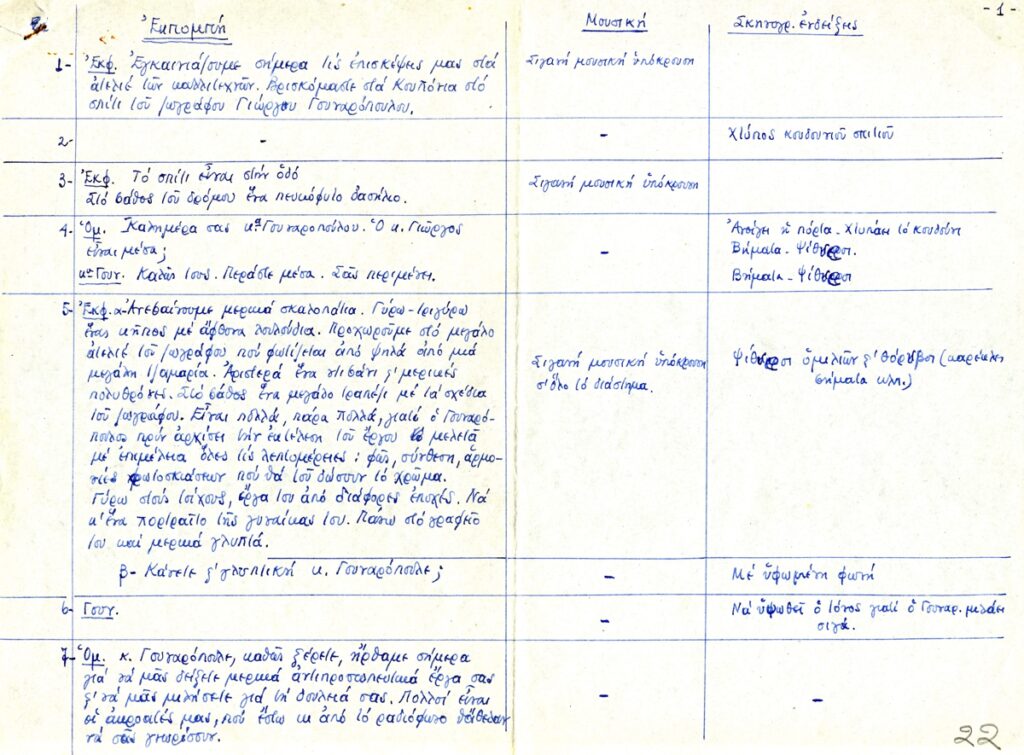 - 1 -
Ἐκπομπή Μουσική Σκηνογρ. ἐνδείξεις
1- Ἐκφ. Ἐγκαινιάζουμε σήμερα τίς ἐπισκέψεις μας στά Σιγανή μουσική ὑπόκρουση
ἀτελιέ τῶν καλλιτεχνῶν. Βρισκόμαστε στά Κουπόνια στό
σπίτι τοῦ ζωγράφου Γιώργου Γουναρόπουλου.
2- - - Χτύπος κουδουνιοῦ σπιτιοῦ
3- Ἐκφ. Τό σπίτι εἶναι στήν ὁδό Σιγανή μουσική ὑπόκρουση
Στό βάθος τοῦ δρόμου ἕνα πευκόφυτο δασύλλιο.
4- Ὁμ. Καλημέρα σας κα Γουναροπούλου. Ὁ κ. Γιῶργος - Ἀνοίγει ἡ πόρτα - Χτυπάει τό κουδούνι
εἶναι μέσα; Βήματα - Ψίθυροι.
κα Γουν. Καλῶς τους. Περάστε μέσα. Σᾶς περιμένει. Βήματα - Ψίθυροι
5- Ἐκφ. α- Ἀνεβαίνουμε μερικά σκαλοπάτια. Γύρω-τριγύρω
ἕνας κῆπος μέ ἄφθονα λουλούδια. Προχωροῦμε στό μεγάλο
ἀτελιέ τοῦ ζωγράφου πού φωτίζεται ἀπό ψηλά ἀπό μιά Σιγανή μουσική ὑπόκρουση Ψίθυροι ὁμιλιῶν κ' θόρυβοι (καρέκλες
μεγάλη τζαμαρία. Ἀριστερά ἕνα ντιβάνι κ' μερικές σ' ὅλο τό διάστημα. βήματα κλπ.)
πολυθρόνες. Στό βάθος ἕνα μεγάλο τραπέζι μέ τά σχέδια
τοῦ ζωγράφου. Εἶναι πολλά, πάρα πολλά, γιατί ὁ Γουναρό-
πουλος πρίν ἀρχίσει τήν ἐκτέλεση τοῦ ἔργου μελετᾶ
μέ ἐπιμέλεια ὅλες τίς λεπτομέρειες: φῶς, σύνθεση, ἁρμο-
νίες φωτοσκιάσεων πού θά τοῦ δώσουν τό χρῶμα.
Γύρω στούς τοίχους, ἔργα του ἀπό διάφορες ἐποχές. Νά
κ' ἕνα πορτραῖτο τῆς γυναίκας του. Πάνω στό γραφεῖο
του καί μερικά γλυπτά.
β- Κάνετε κ' γλυπτική κ. Γουναρόπουλε; - Μέ ὑψωμένη φωνή
6- Γουν. - Νά ὑψωθεῖ ὁ τόνος γιατί ὁ Γουναρ. μιλάει
σιγά.
7- Ὁμ. κ. Γουναρόπουλε, καθώς ξέρετε, ἤρθαμε σήμερα
γιά νά μᾶς δείξετε μερικά ἀντιπροσωπευτικά ἔργα σας
κ' νά μᾶς μιλήσετε γιά τή δουλειά σας. Πολλοί εἶναι - -
οἱ ἀκροατές μας, πού ἔστω κι ἀπό τό ραδιόφωνο θά ἤθελαν
νά σᾶς γνωρίσουν.
22